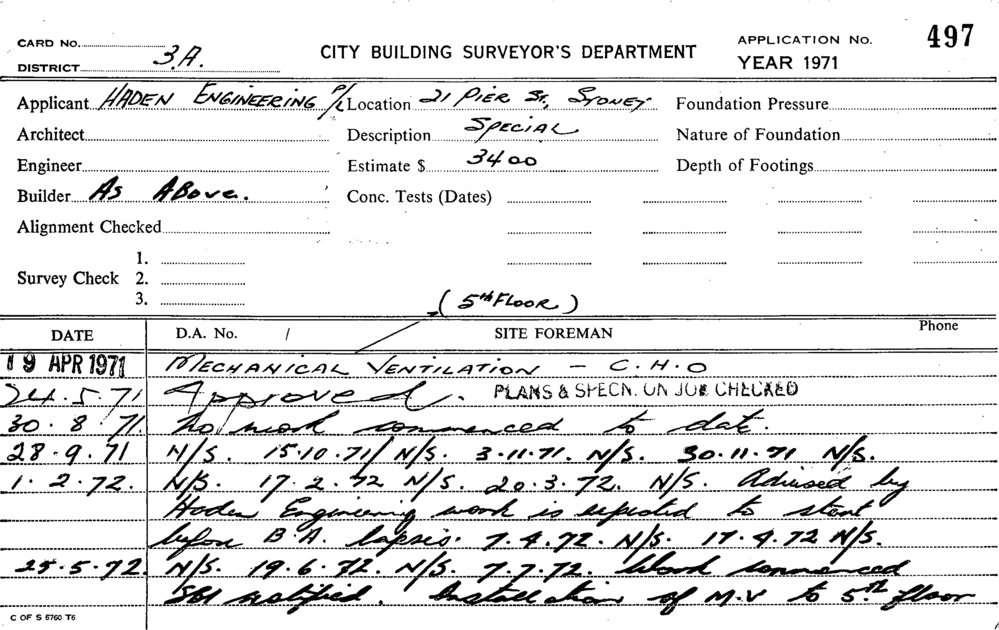 CARD No. CITY BUILDING SURVEYOR'S DEPARTMENT APPLICATION No. 497
DISTRICT 3.A. YEAR 1971
Applicant HADEN ENGINEERING P/L Location 21 PIER ST, SYDNEY Foundation Pressure
Architect Description SPECIAL Nature of Foundation
Engineer Estimate $ 3400 Depth of Footings
Builder As Above. Conc. Tests (Dates)
Alignment Checked
Survey Check 1.
2.
3.
(5th FLOOR)
DATE D.A. No. / SITE FOREMAN Phone
19 APR 1971 MECHANICAL VENTILATION - C.H.O
24.5.71 Approved. PLANS & SPECN. ON JOB CHECKED
30.8.71. No work commenced to date.
28.9.71 N/S. 15.10.71/ N/S. 3.11.71. N/S. 30.11.71 N/S.
1.2.72. N/S. 17.2.72 N/S. 20.3.72. N/S. Advised by
Haden Engineering work is expected to start
before B.A. lapses. 7.4.72. N/S. 17.4.72 N/S.
25.5.72. N/S. 19.6.72. N/S. 7.7.72. Work commenced
SBI notified. Installation of M.V to 5th floor
C OF S 6760 T6